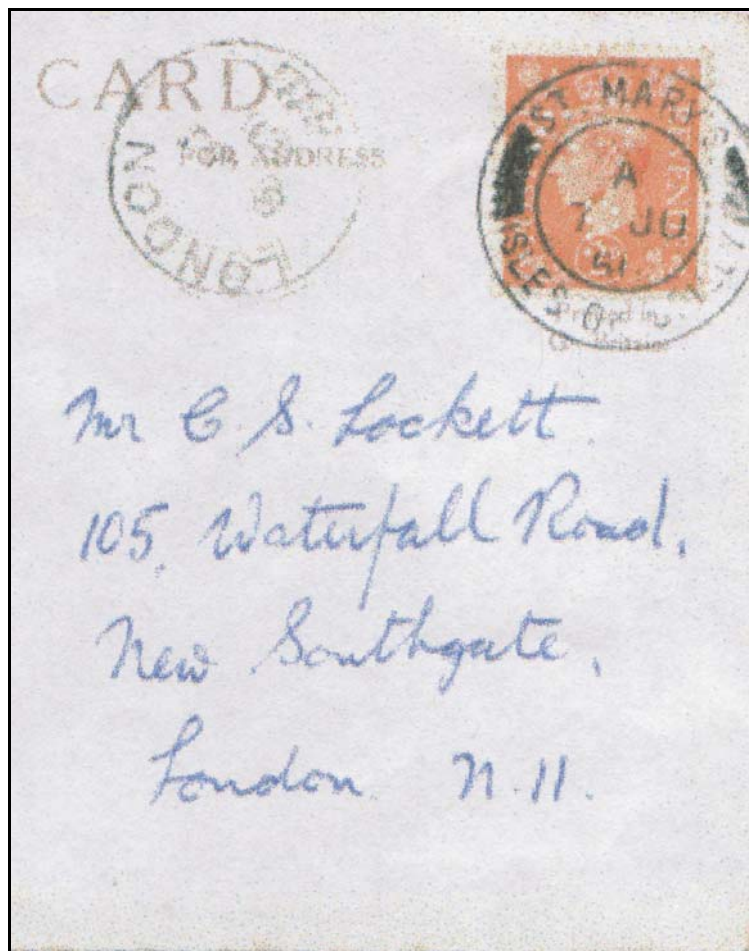 CARD
FOR ADDRESS
LONDON
ST MARYS
A
7 JU
51
ISLES O
Printed in
Gt. Britain
Mr C. S. Lockett.
105, Waterfall Road,
New Southgate,
London. N. 11.